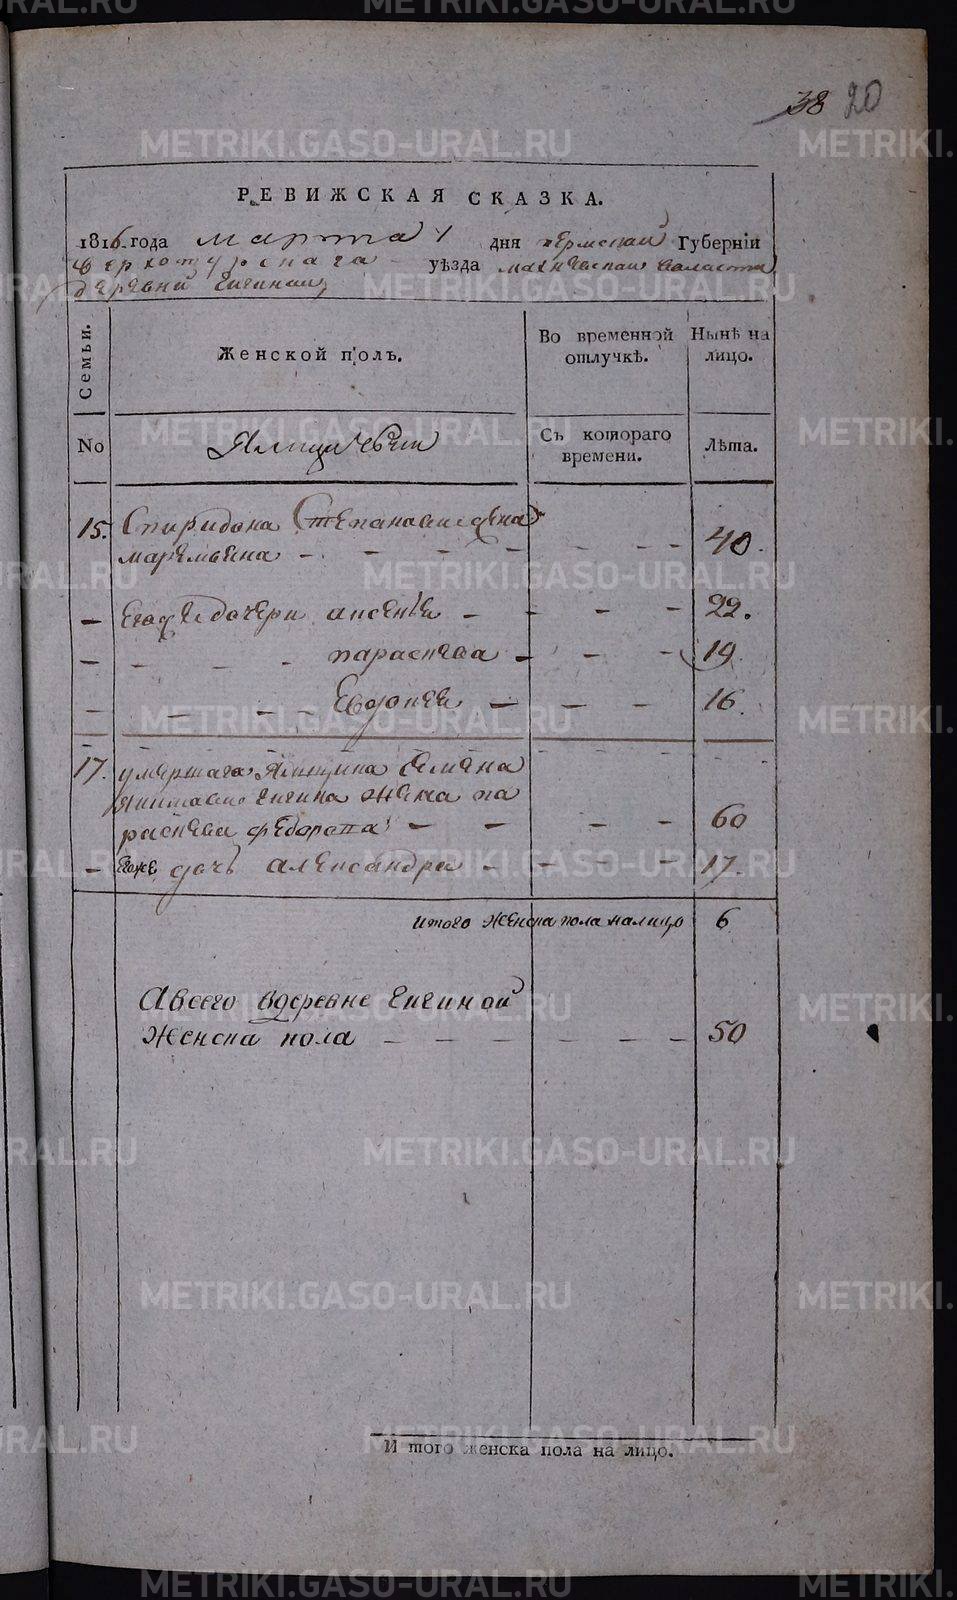 38 20
РЕВИЖСКАЯ СКАЗКА.
1816 года марта 1 дня пермской Губернїи
верхотурскаго уѣзда махневской валасти
деревни гигиной
Семьи. Женской полъ. Во временной отлучкѣ. Нынѣ на лицо.
No Съ котораго времени. Лѣта.
15. Спиридона Степанава жена
маремьена - - - - - - - 40.
- егоже дочери аксенье - - - 22.
- - - - параскева - - - 19
- - - - Евдокее - - - 16.
17. умершаго Ямщика Семена
гигина жена па
раскева федорова - - - - 60
- егоже дочь александра - - - - 17.
итого женска пола налицо 6
Авсего вдеревне гигиной
женска пола - - - - - - - 50
И того женска пола на лицо.
METRIKI.GASO-URAL.RU